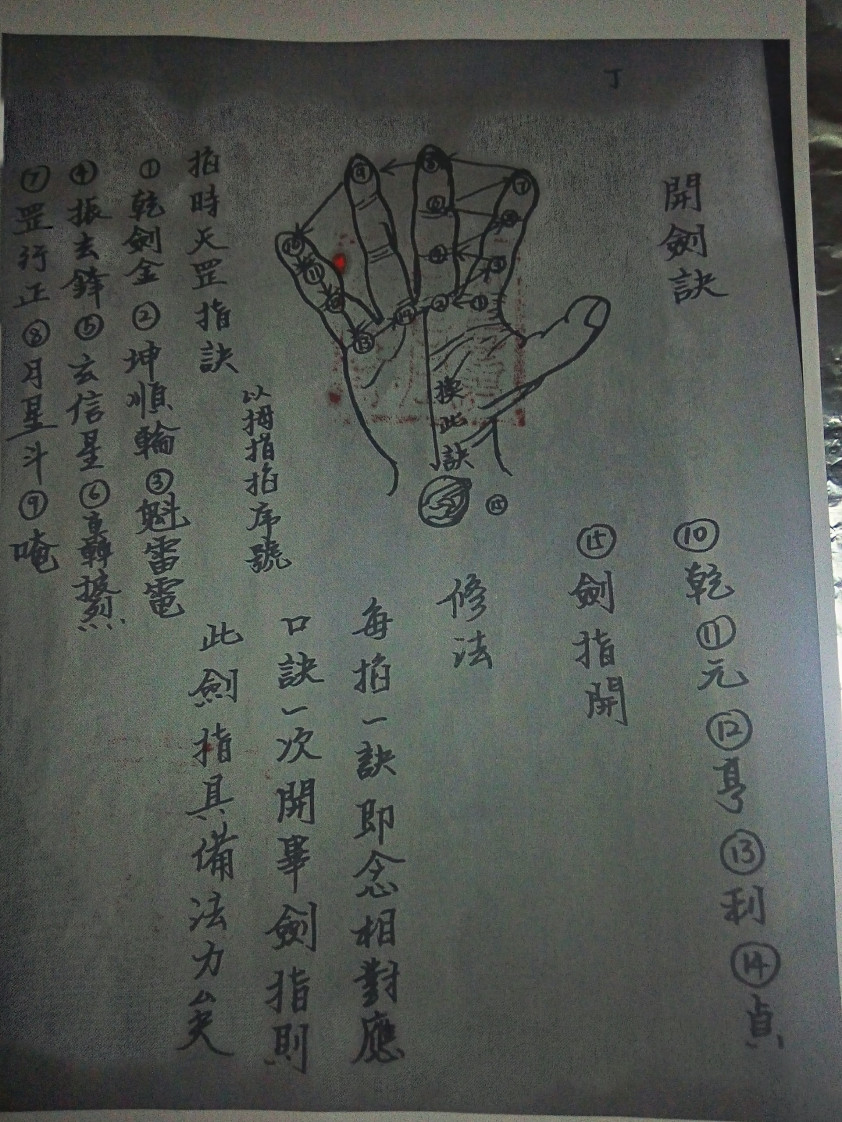 丁
開劍訣
⑨ ⑧ ⑦
⑩ ⑪ ⑬
② ①
換此訣
⑮
掐時天罡指訣
以拇指掐序號
①乾劍金②坤順輪③魁雷電
④振去鋒⑤玄信星⑥
⑦罡行正⑧月星斗⑨唵
⑩乾⑪元⑫亨⑬利⑭貞
⑮劍指開
修法
每掐一訣即念相對應
口訣一次開畢劍指則
此劍指具備法力矣